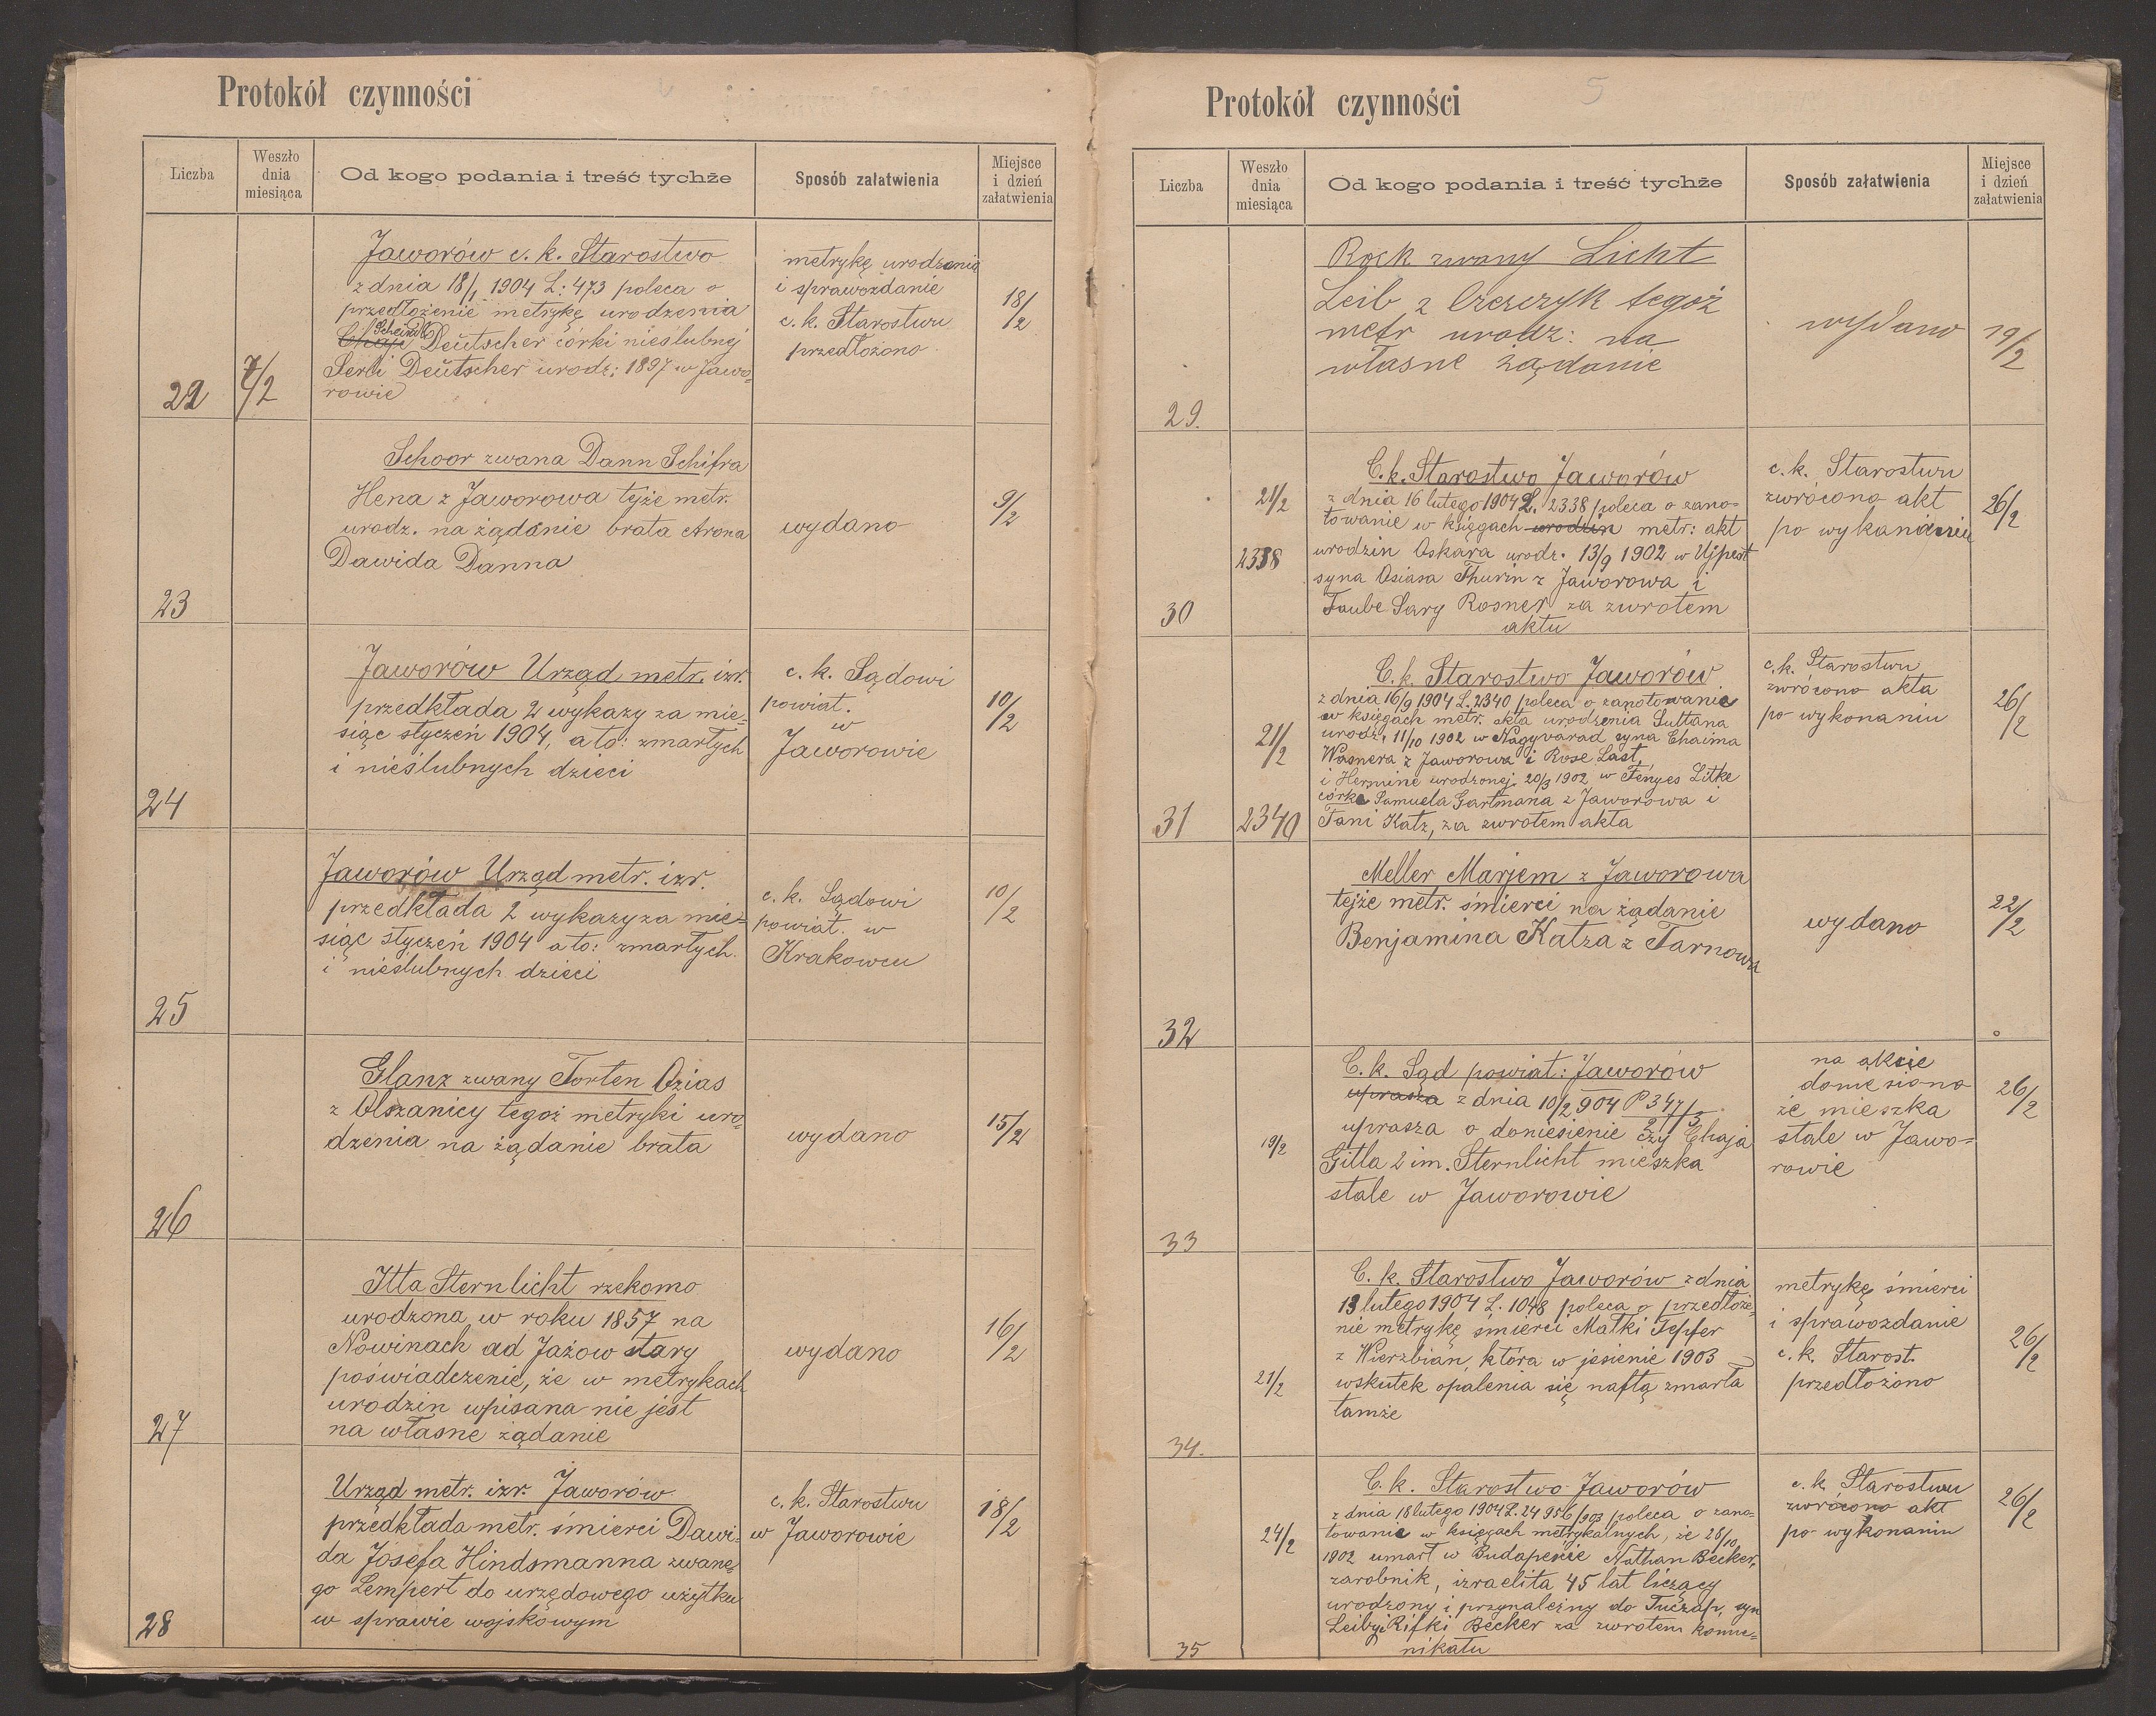 Protokół czynności
Liczba
Weszło
dnia
miesiąca
Od kogo podania i treść tychże
Sposób załatwienia
Miejsce
i dzień
załatwienia
22
7/2
Jaworów c. k. Starostwo
z dnia 18/1 1904 L: 473 poleca o
przedłożenie metrykę urodzenia
Chaji Scheindli Deutscher córki nieślubnej
Serli Deutscher urodz: 1897 w Jawo-
rowie
metrykę urodzenia
i sprawozdanie
c. k. Starostwu
przedłożono
18/2
23
Schoor zwana Dann Schifra
Hena z Jaworowa tejże metr.
urodz. na żądanie brata Arona
Dawida Danna
wydano
9/2
24
Jaworów Urząd metr. izr.
przedkłada 2 wykazy za mie-
siąc styczeń 1904, a to: zmarłych
i nieślubnych dzieci
c. k. Sądowi
powiat.
w
Jaworowie
10/2
25
Jaworów Urząd metr. izr.
przedkłada 2 wykazy za mie-
siąc styczeń 1904 a to: zmarłych
i nieślubnych dzieci
c. k. Sądowi
powiat. w
Krakowcu
10/2
26
Glanz zwany Torten Ozias
z Olszanicy tegoż metryki uro-
dzenia na żądanie brata
wydano
15/2
27
Itta Sternlicht rzekomo
urodzona w roku 1857 na
Nowinach ad Jażow stary
poświadczenie, że w metrykach
urodzin wpisana nie jest
na własne żądanie
wydano
16/2
28
Urząd metr. izr. Jaworów
przedkłada metr. śmierci Dawi-
da Józefa Hindsmanna zwane-
go Lempert do urzędowego użytku
w sprawie wojskowym
c. k. Starostwu
w Jaworowie
18/2
5
Protokół czynności
Liczba
Weszło
dnia
miesiąca
Od kogo podania i treść tychże
Sposób załatwienia
Miejsce
i dzień
załatwienia
29.
Rock zwany Licht
Leib z tegoż
metr urodz: na
własne żądanie
wydano
19/2
30
21/2
2338
C. k. Starostwo Jaworów
z dnia 16 lutego 1904 L. 2338 poleca o zano-
towanie w księgach urodzin metr: akt
urodzin Oskara urodz. 13/9 1902 w Ujpest
syna Osiasa Thurin z Jaworowa i
Taube Sary Rosner za zwrotem
aktu
c. k. Starostwu
zwrócono akt
po wykananiu
26/2
31
21/2
2340
C. k. Starostwo Jaworów
z dnia 16/9 1904 L. 2340 poleca o zanotowanie
w księgach metr. akta urodzenia Sultana
urodz: 11/10 1902 w Nagyvarad syna Chaima
Wasnera z Jaworowa i Rose Last,
i Hermine urodzonej 20/3 1902 w Fényes Litke
córke Samuela Gartmana z Jaworowa i
Fani Katz, za zwrotem akta
c. k. Starostwu
zwrócono akta
po wykonaniu
26/2
32
Meller Marjem z Jaworowa
tejże metr. śmierci na żądanie
Benjamina Katza z Tarnowa
wydano
22/2
33
19/2
C. k. Sąd powiat: Jaworów
uprasza z dnia 10/2 904 P 347/3
uprasza o doniesienie czy Chaja
Gitla 2 im. Sternlicht mieszka
stale w Jaworowie
na akcie
doniesiono
że mieszka
stale w Jawo=
rowie
26/2
34.
21/2
C. k. Starostwo Jaworów z dnia
13 lutego 1904 L. 1048 poleca o przedłoże-
nie metrykę śmierci Matki Tepfer
z Wierzbian, która w jesienie 1903
wskutek opalenia się naftą zmarła
tamże
metrykę śmierci
i sprawozdanie
c. k. Starost.
przedłożono
26/2
35
24/2
C. k. Starostwo Jaworów
z dnia 18 lutego 1904 L. 24956/903 poleca o zano-
towanie w księgach metrykalnych, że 28/10
1902 umarł w Budapeście Nathan Becker,
zarobnik, izraelita 45 lat liczący
urodzony i przynależny do Tuczap, syn
Leiby i Rifki Becker za zwrotem komu-
nikatu
c. k. Starostwu
zwrócono akt
po wykonaniu
26/2